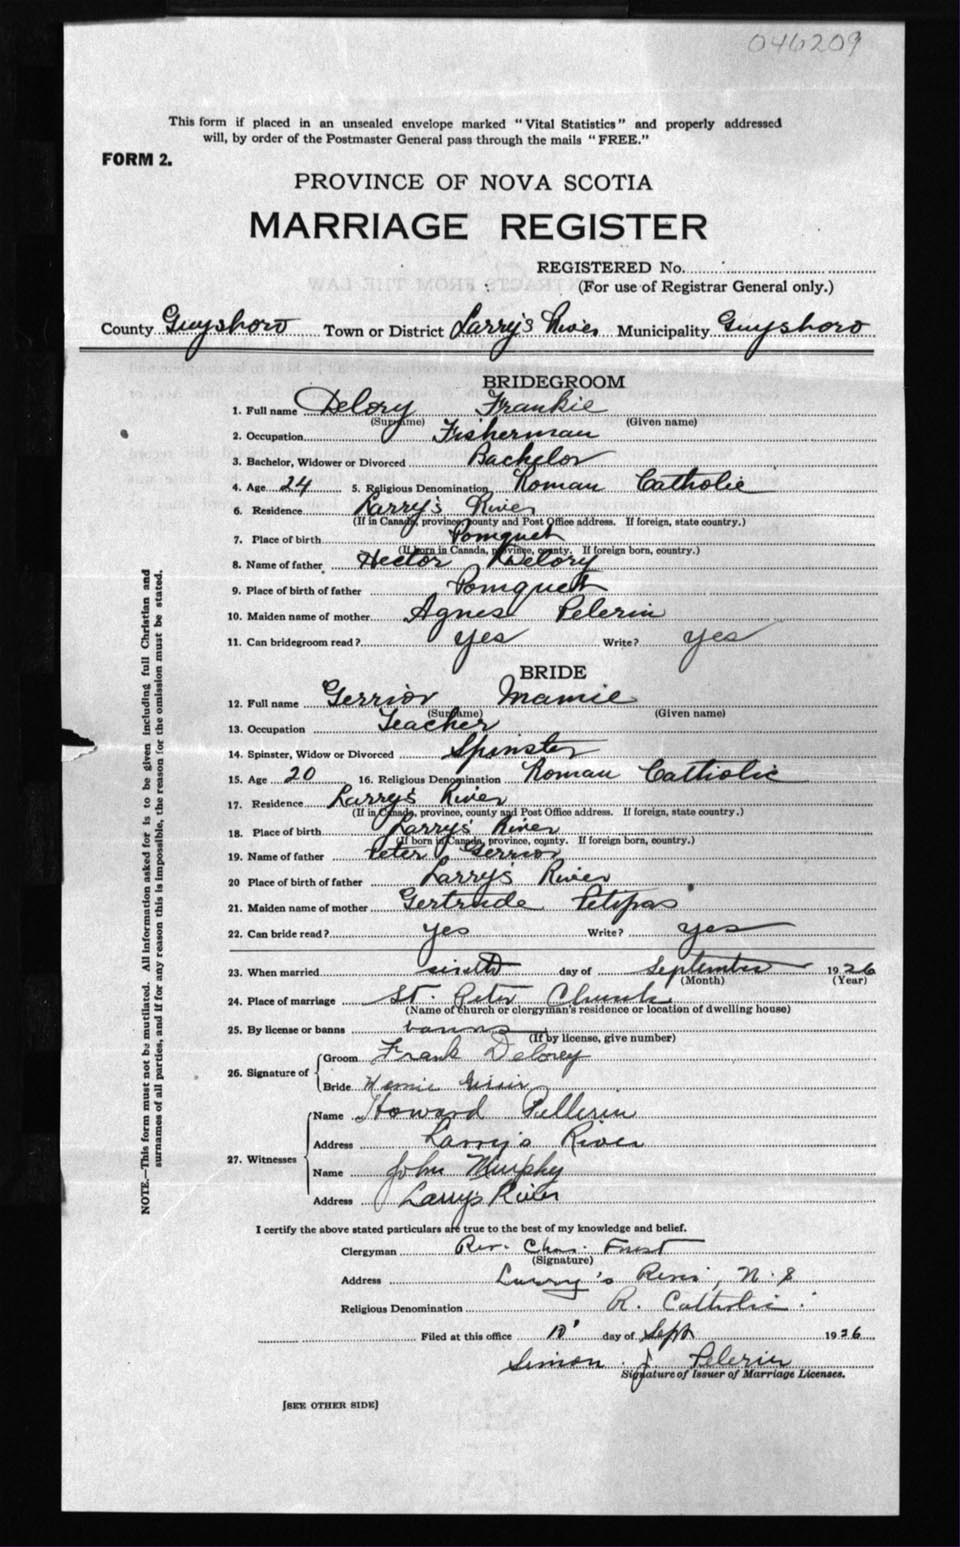 046209
This form if placed in an unsealed envelope marked "Vital Statistics" and properly addressed
will, by order of the Postmaster General pass through the mails "FREE."
FORM 2.
PROVINCE OF NOVA SCOTIA
MARRIAGE REGISTER
REGISTERED No.
(For use of Registrar General only.)
County Guysboro Town or District Larry's River Municipality Guysboro
BRIDEGROOM
1. Full name Delory Frankie
(Surname) (Given name)
2. Occupation Fisherman
3. Bachelor, Widower or Divorced Bachelor
4. Age 24 5. Religious Denomination Roman Catholic
6. Residence Larry's River
(If in Canada, province, county and Post Office address. If foreign, state country.)
7. Place of birth Pomquet
(If born in Canada, province, county. If foreign born, country.)
8. Name of father Hector Delory
9. Place of birth of father Pomquet
10. Maiden name of mother Agnes Pelerin
11. Can bridegroom read? yes Write? yes
BRIDE
12. Full name Gerrior Mamie
(Surname) (Given name)
13. Occupation Teacher
14. Spinster, Widow or Divorced Spinster
15. Age 20 16. Religious Denomination Roman Catholic
17. Residence Larry's River
(If in Canada, province, county and Post Office address. If foreign, state country.)
18. Place of birth Larry's River
(If born in Canada, province, county. If foreign born, country.)
19. Name of father Peter Gerrior
20 Place of birth of father Larry's River
21. Maiden name of mother Gertrude Petipas
22. Can bride read? yes Write? yes
23. When married day of September 1926
(Month) (Year)
24. Place of marriage St. Peter Church
(Name of church or clergyman's residence or location of dwelling house)
25. By license or banns banns
(If by license, give number)
26. Signature of
Groom Frank Delorey
Bride
27. Witnesses
Name Howard Pellerin
Address Larry's River
Name John Murphy
Address Larrys River
I certify the above stated particulars are true to the best of my knowledge and belief.
Clergyman Rev. Chas. Forest
(Signature)
Address Larry's River, N.S
Religious Denomination R. Catholic
Filed at this office day of Sept 1926
Simon J. Pelerin
Signature of Issuer of Marriage Licenses.
[SEE OTHER SIDE]
NOTE.—This form must not be mutilated. All information asked for is to be given including full Christian and
surnames of all parties, and if for any reason this is impossible, the reason for the omission must be stated.